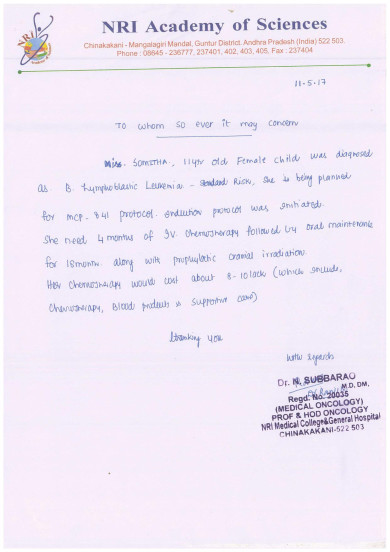 NRI
NRI Academy of Sciences
Chinakakani - Mangalagiri Mandal, Guntur District, Andhra Pradesh (India) 522 503.
Phone : 08645 - 236777, 237401, 402, 403, 405, Fax : 237404
11-5-17
To whom so ever it may concern
Miss. SOMITHA, 11yr old Female child was diagnosed
as B. Lymphoblastic Leukemia - Standard Risk, She is being planned
for MCP-841 protocol. Induction protocol was initiated.
She need 4 months of IV. Chemotherapy followed by oral maintenance
for 18 month. along with prophylactic cranial irradiation.
Her chemotherapy would cost about 8-10 lack (which include,
Chemotherapy, Blood products & supportive care)
Thanking you
with regards
Dr. N. SUBBARAO
M.D, DM,
Regd. No: 20035
(MEDICAL ONCOLOGY)
PROF & HOD ONCOLOGY
NRI Medical College&General Hospital
CHINAKAKANI-522 503